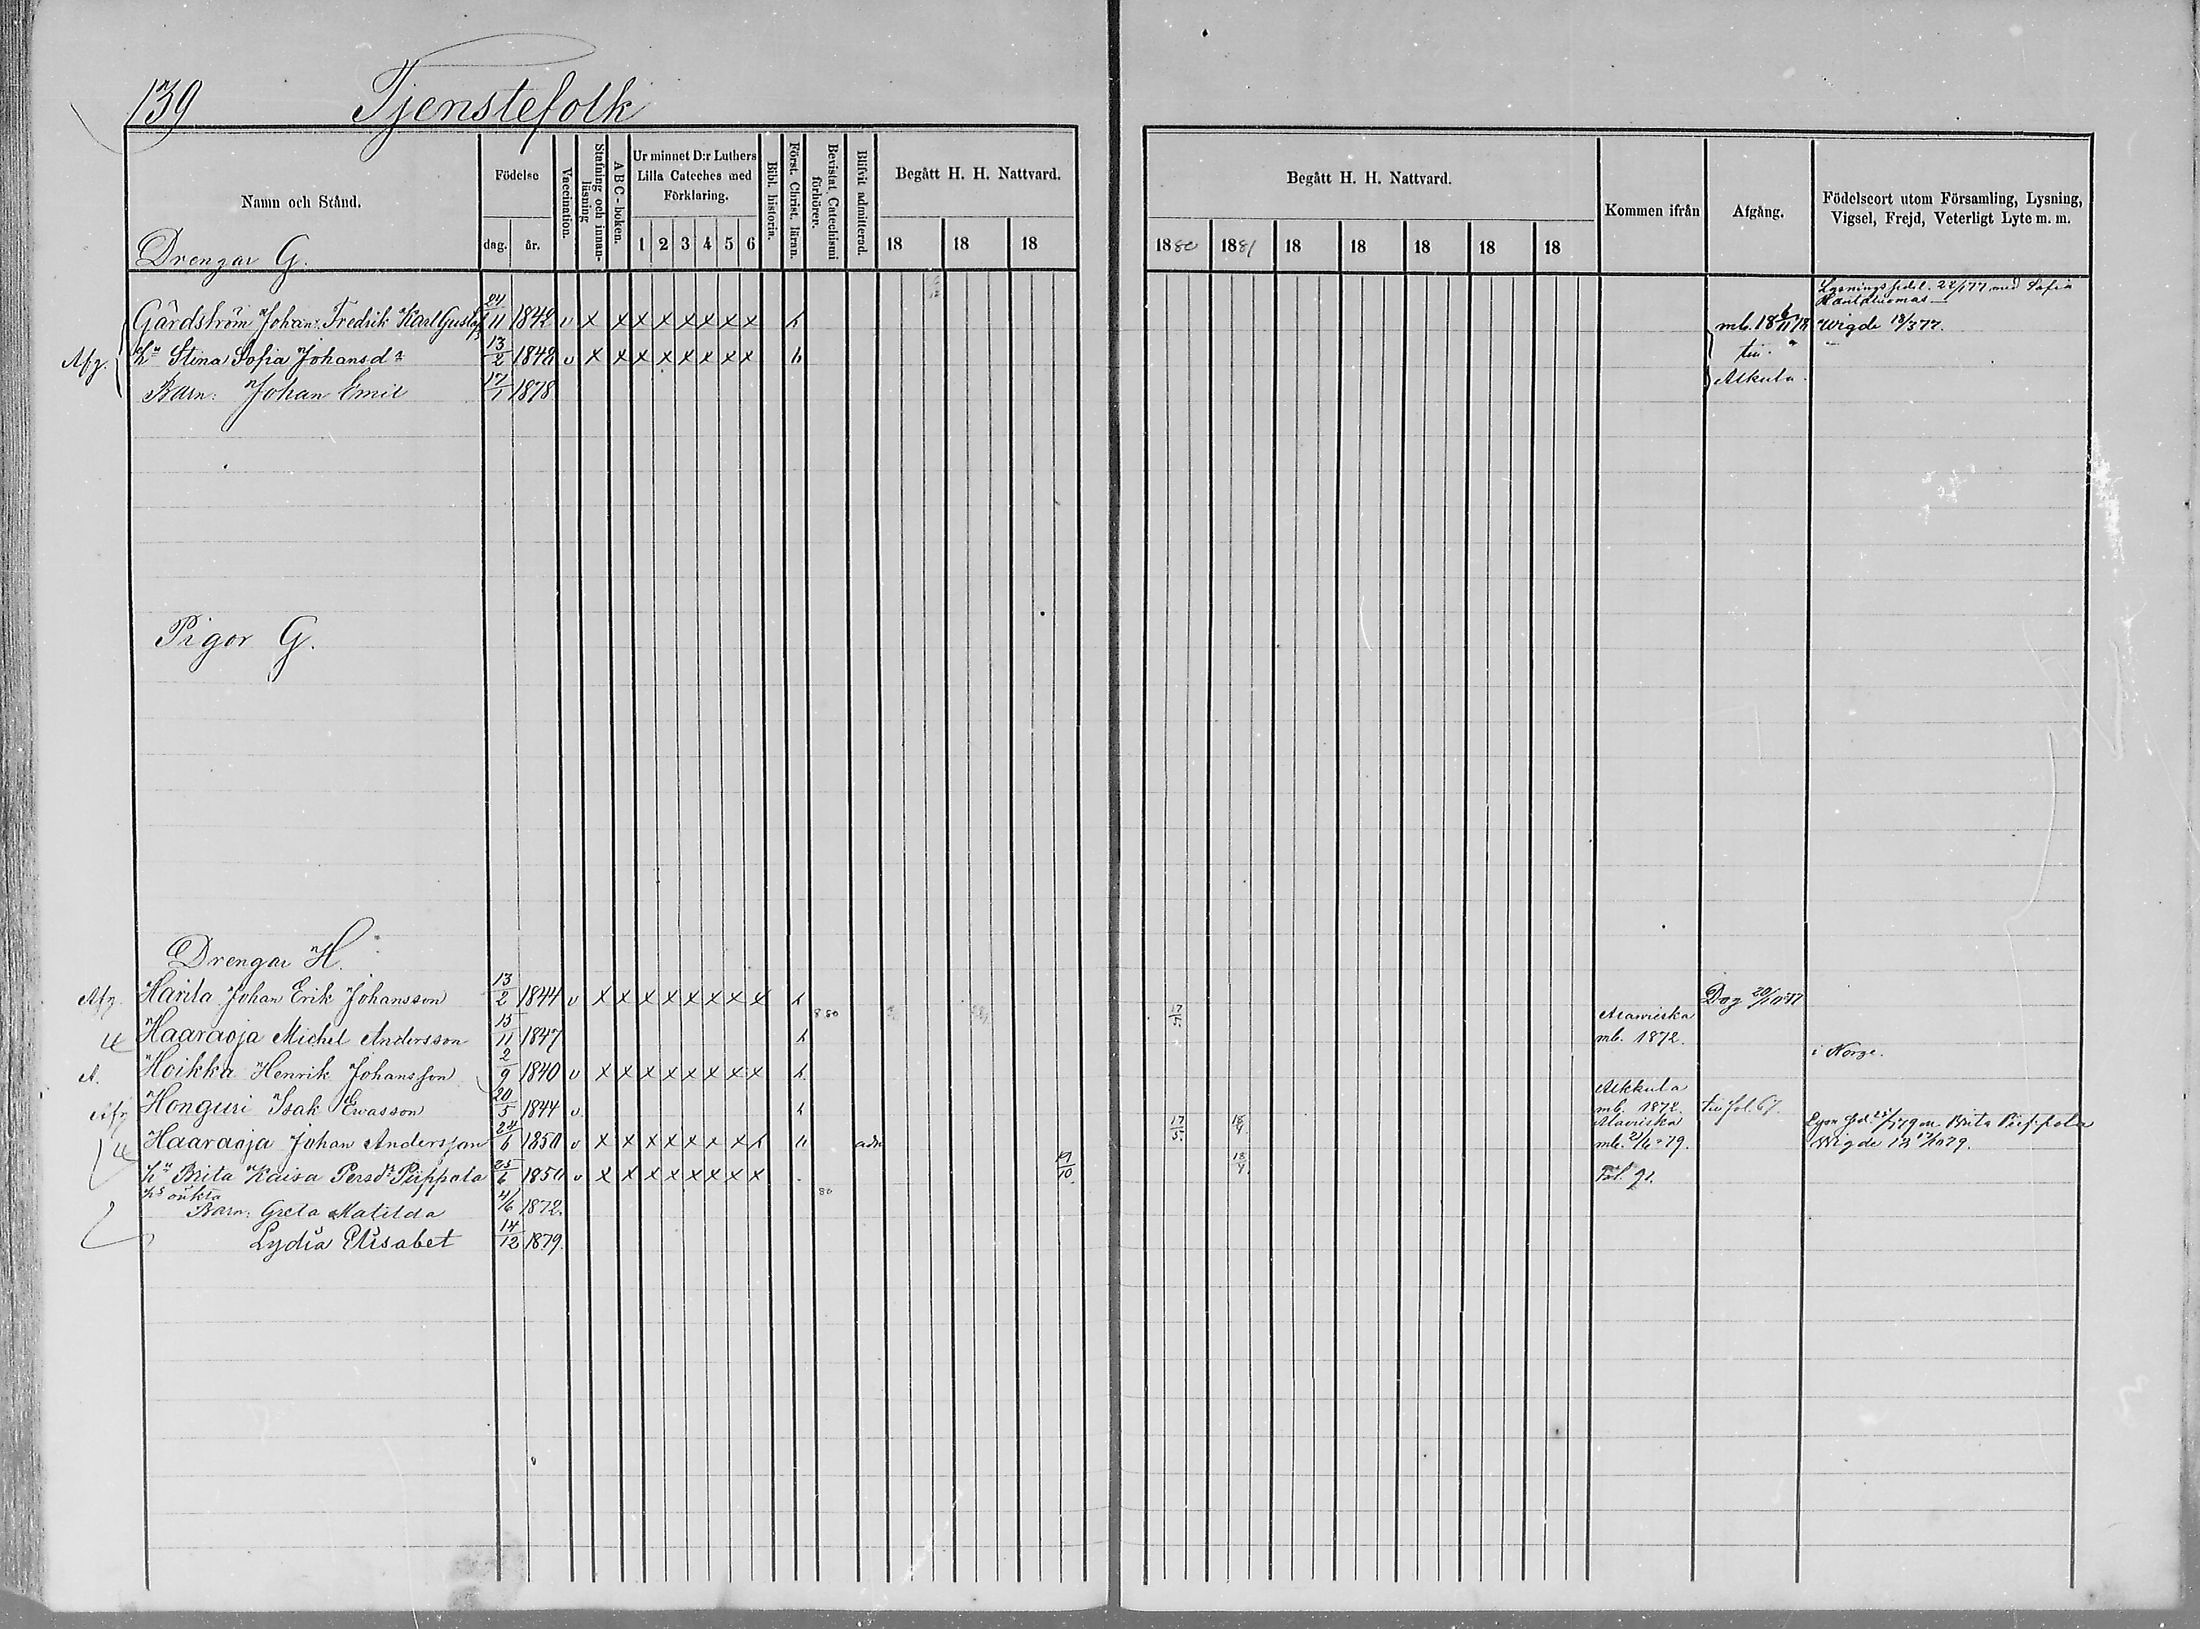 139 Tjenstefolk
Namn och Stånd.
Födelse
dag. år.
Vaccination.
Stafning och innanläsning
ABC-boken.
Ur minnet D:r Luthers Lilla Cateches med Förklaring.
1 2 3 4 5 6
Bibl. historia.
Först. Christ. läran.
Bevistat Catechismi förhörer.
Blifvit admitterad.
Begått H. H. Nattvard.
18 18 18
Begått H. H. Nattvard.
1880 1881 18 18 18 18 18
Kommen ifrån
Afgång.
Födelseort utom Församling, Lysning, Vigsel, Frejd, Veterligt Lyte m. m.
Drengar G.
Lysningssedel. 22/1 77 med Sofia
Gårdström Johan Fredrik Karl Gustafs 24/11 1842 v x x x x x x x x h mb. 18 6/11 78 Wigde 18/3 77.
Afg. h:u Stina Sofia Johansd:r 13/2 1848 v x x x x x x x x h till
Barn: Johan Emil 17/1 1878 Alkula.
Pigor G.
Drengar H.
Afg. Harila Johan Erik Johansson 13/2 1844 v x x x x x x x x h Dog 20/10 77
Haaraoja Michel Andersson 15/11 1847 h 8.80 17/5 Alavieska mb. 1872.
A. Hoikka Henrik Johansson 2/9 1840 v x x x x x x x x h i Norge.
Afg Honguri Isak Ewasson 20/5 1844 v h Alkkula mb. 1872. till fol. 67.
Haaraoja Johan Andersson 24/6 1850 v x x x x x x x h adm 17/5 18/9 Alavieska mb. 2/6 79. Lysn. sed. 25/1 79 m Brita Piippola Wigde
h:u Brita Kaisa Persd:r Piippola 25/6 1850 v x x x x x x x x 19/10. 18/9. Fol. 91.
h:s oäkta
Barn: Greta Matilda 4/6 1872. 80
Lydia Elisabet 14/12 1879.